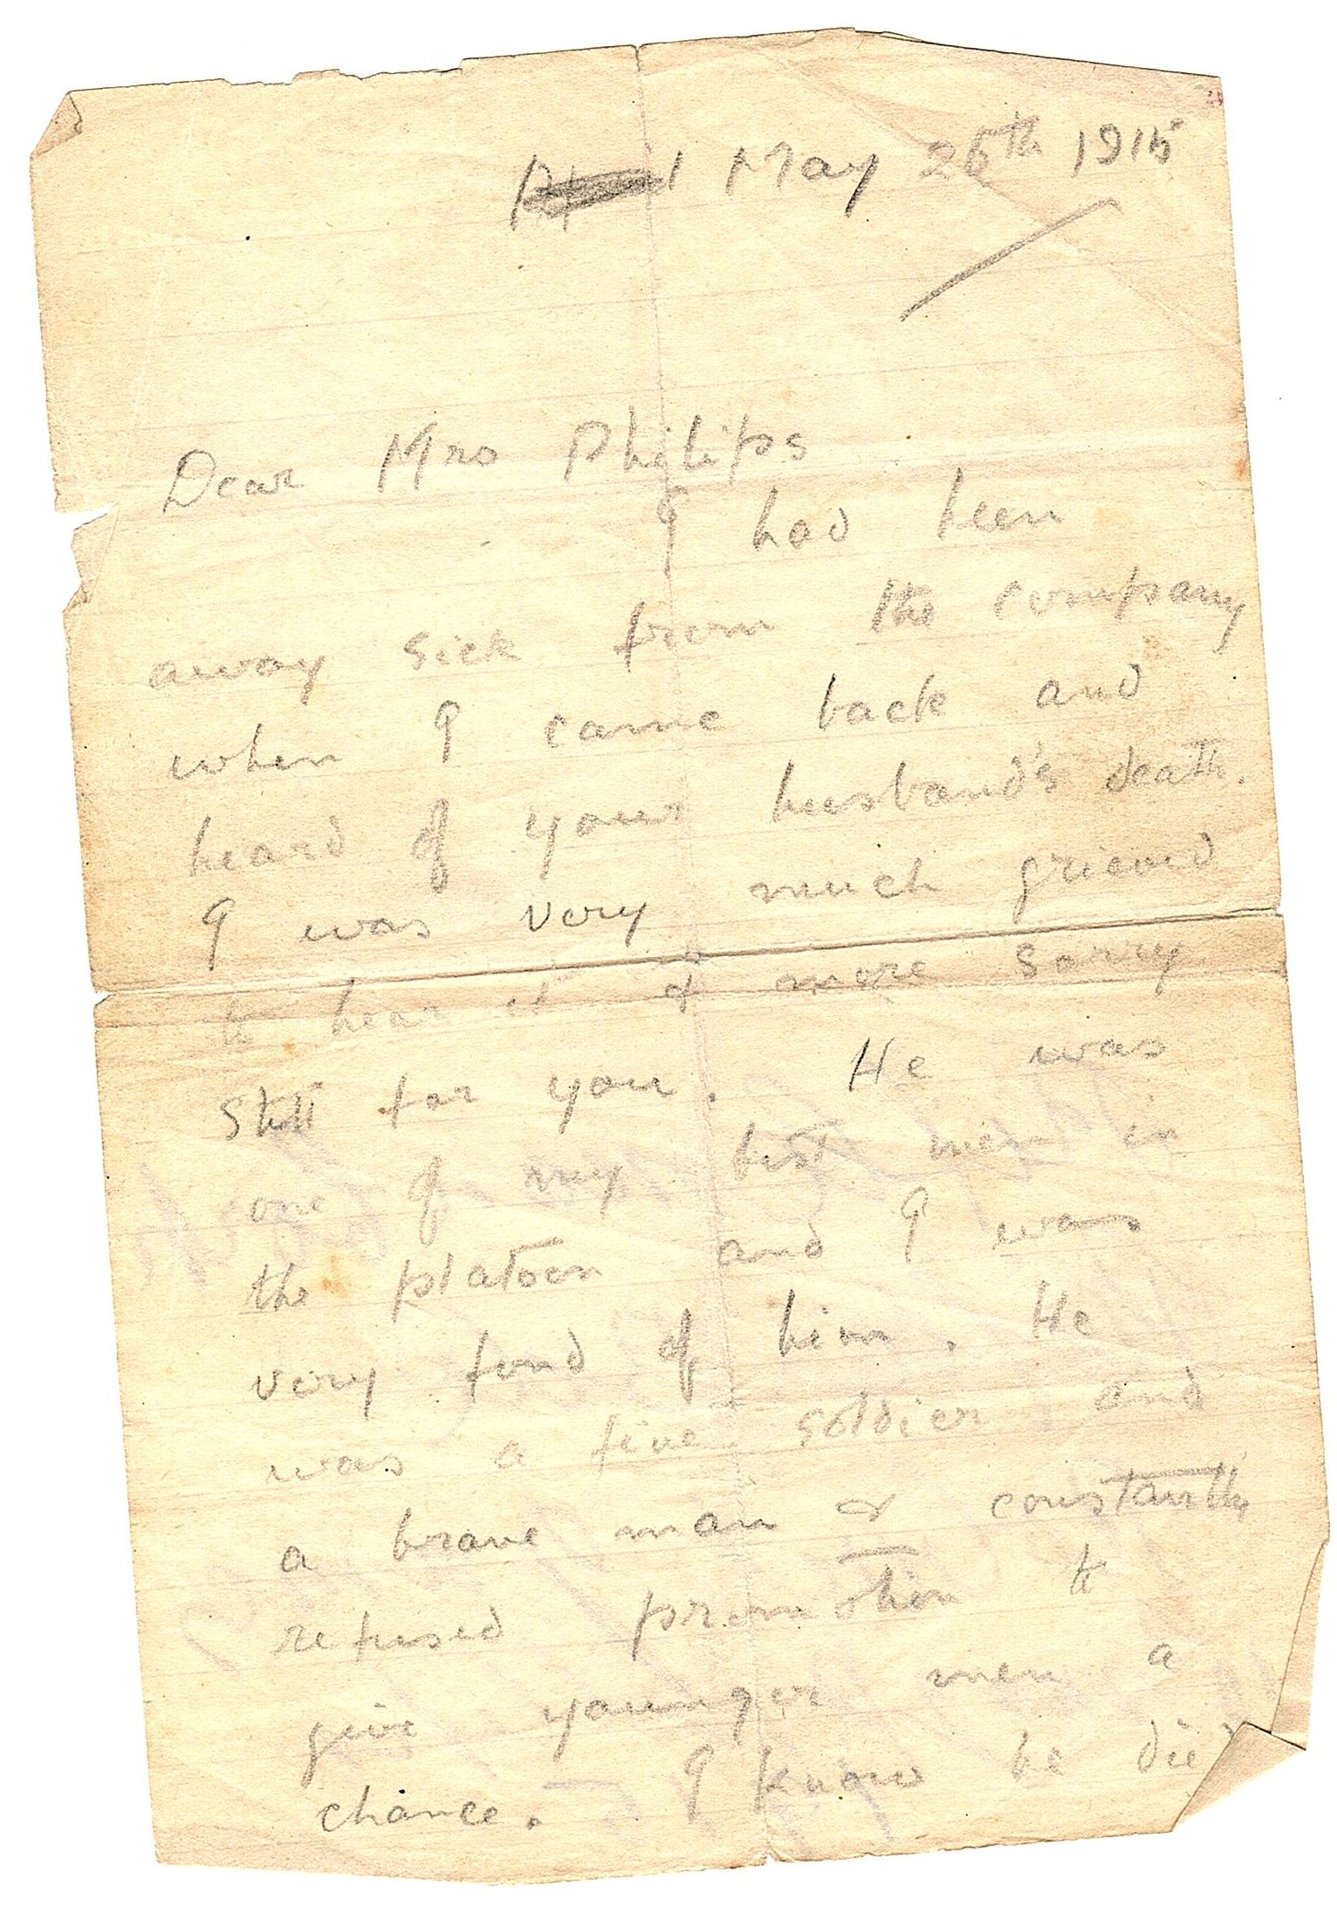 May 25th 1915
Dear Mrs Philips
I had been
away sick from the company
when I came back and
heard of your husband's death.
I was very much grieved
to hear it & more sorry
still for you. He was
one of my best men in
the platoon and I was
very fond of him. He
was a fine soldier and
a brave man & constantly
refused promotion to
give younger men a
chance. I know he died